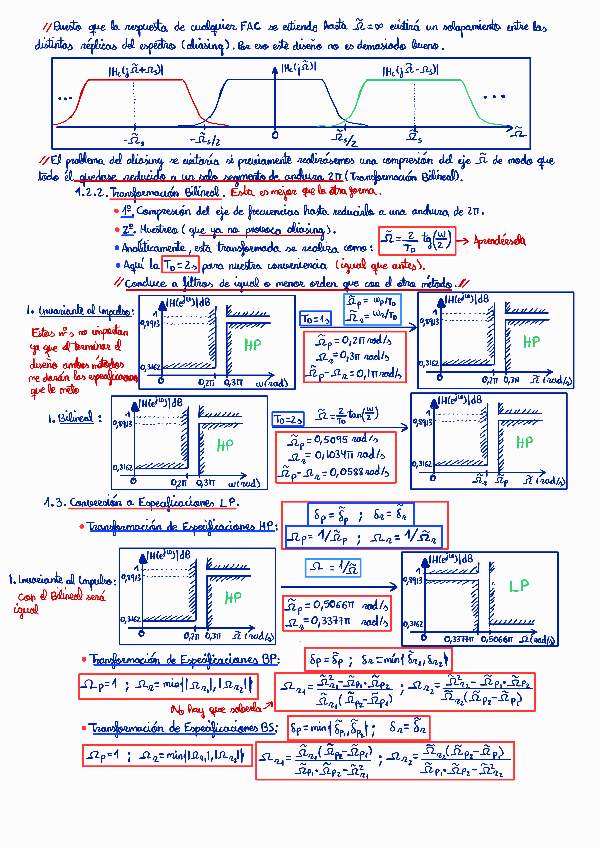 // Puesto que la respuesta de cualquier FAC se extiende hasta Ω̃=∞ existirá un solapamiento entre las
distintas réplicas del espectro (aliasing). Por eso este diseño no es demasiado bueno.
|Hc(jΩ̃+Ωs)| |Hc(jΩ̃)| |Hc(jΩ̃-Ωs)|
... ...
-Ω̃s -Ω̃s/2 0 Ω̃s/2 Ω̃s Ω̃
// El problema del aliasing se evitaría si previamente realizásemos una compresión del eje Ω̃ de modo que
todo él quedase reducido a un solo segmento de anchura 2π (Transformación Bilineal).
1.2.2. Transformación Bilineal. Esta es mejor que la otra forma.
• 1º. Compresión del eje de frecuencias hasta reducirlo a una anchura de 2π.
• 2º. Muestreo (que ya no provoca aliasing).
• Analíticamente, esta transformada se realiza como: Ω̃ = 2/TD tg(ω/2) → Apréndersela
• Aquí la TD=2s para nuestra conveniencia (igual que antes).
// Conduce a filtros de igual o menor orden que con el otro método. //
1. Invariante al Impulso:
Estos nºs no importan
ya que al terminar el
diseño ambos métodos
me darán las especificaciones
que le meto
|H(e^jω)|dB
1
0,8913
HP
0,3162
0 0,2π 0,3π ω(rad)
TD=1s
Ω̃p = ωp/TD
Ω̃r = ωr/TD
Ω̃p = 0,2π rad/s
Ωr = 0,3π rad/s
Ω̃p - Ω̃r = 0,1π rad/s
|H(e^jω)|dB
1
0,8913
HP
0,3162
0 0,2π 0,3π Ω̃(rad/s)
1. Bilineal:
|H(e^jω)|dB
1
0,8913
HP
0,3162
0 0,2π 0,3π ω(rad)
TD=2s Ω̃ = 2/TD tan(ω/2)
Ω̃p = 0,5095 rad/s
Ωr = 0,1034π rad/s
Ω̃p - Ωr = 0,0588π rad/s
|H(e^jω)|dB
1
0,8913
HP
0,3162
0 Ω̃r Ω̃p Ω̃(rad/s)
1.3. Conversión a Especificaciones LP.
• Transformación de Especificaciones HP: δp = δ̃p ; δr = δ̃r
Ωp = 1/Ω̃p ; Ωr = 1/Ω̃r
1. Invariante al Impulso:
con el Bilineal será
igual
|H(e^jω)|dB
1
0,8913
HP
0,3162
0 0,2π 0,3π Ω̃(rad/s)
Ω = 1/Ω̃
Ω̃p = 0,5066π rad/s
Ωr = 0,3377π rad/s
|H(e^jω)|dB
1
0,8913
LP
0,3162
0 0,3377π 0,5066π Ω(rad/s)
• Transformación de Especificaciones BP: δp = δ̃p ; δr = min{δ̃r1, δr2}
Ωp = 1 ; Ωr = min{|Ωr1|, |Ωr2|} Ωr1 = (Ω̃²r1 - Ω̃p1·Ω̃p2) / (Ω̃r1(Ω̃p2 - Ω̃p1)) ; Ωr2 = (Ω̃²r2 - Ω̃p1·Ω̃p2) / (Ω̃r2(Ω̃p2 - Ω̃p1))
No hay que saberla →
• Transformación de Especificaciones BS: δp = min{δ̃p1, δ̃p2} ; δr = δ̃r
Ωp = 1 ; Ωr = min{|Ωr1|, |Ωr2|} Ωr1 = (Ω̃r1(Ω̃p2 - Ω̃p1)) / (Ω̃p1·Ω̃p2 - Ω̃²r1) ; Ωr2 = (Ω̃r2(Ω̃p2 - Ω̃p1)) / (Ω̃p1·Ω̃p2 - Ω̃²r2)